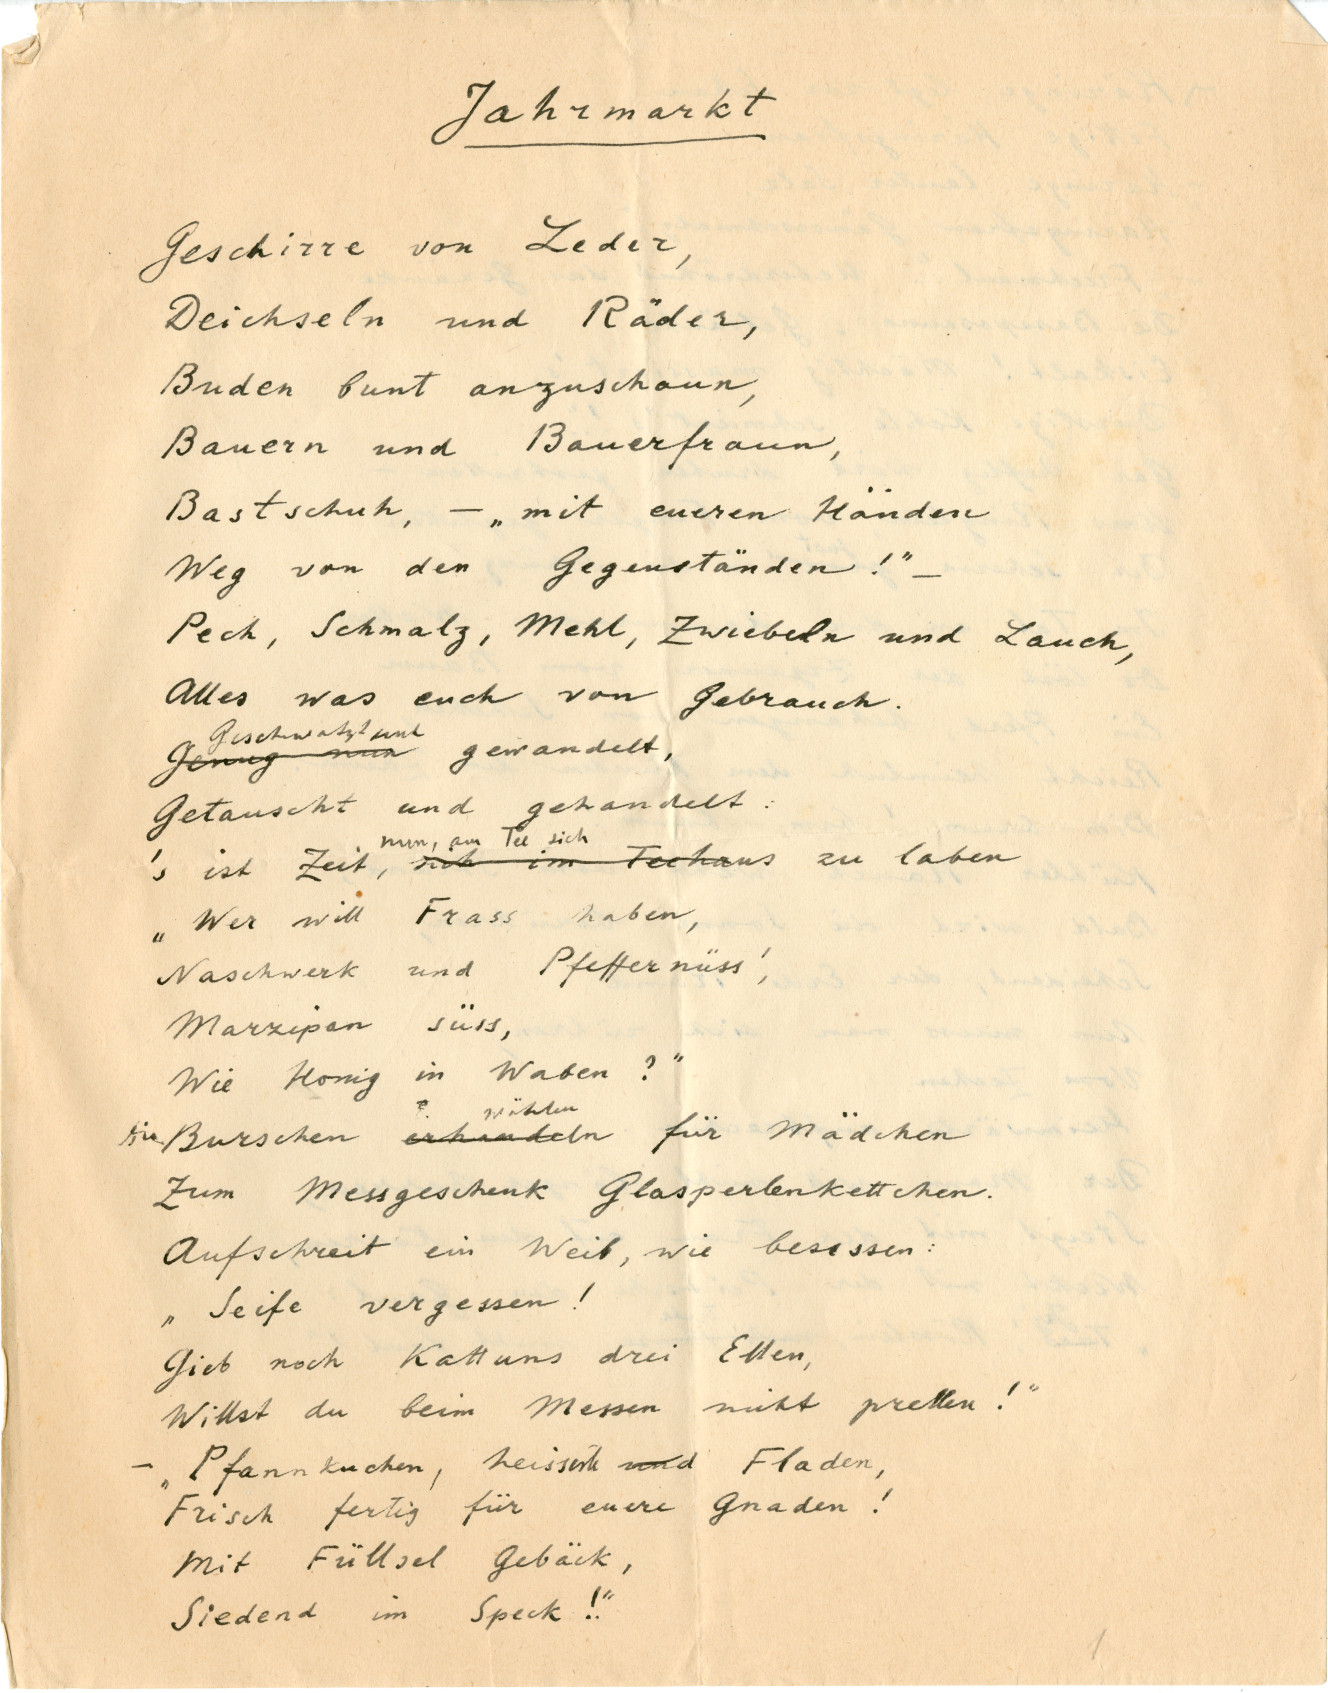 Jahrmarkt
Geschirre von Leder,
Deichseln und Räder,
Buden bunt anzuschaun,
Bauern und Bauerfraun,
Bastschuh, – „mit eueren Händen
Weg von den Gegenständen!" –
Pech, Schmalz, Mehl, Zwiebeln und Lauch,
Alles was euch von Gebrauch.
Geschwatzt und
Genug nun gewandelt,
Getauscht und gehandelt:
nun, am Tee sich
's ist Zeit, sich im Teehaus zu laben
„Wer will Frass haben,
Naschwerk und Pfeffernüss',
Marzipan süss,
Wie Honig in Waben?"
wählen
Die Burschen erhandeln für Mädchen
Zum Messgeschenk Glasperlenkettchen.
Aufschreit ein Weib, wie besessen:
„Seife vergessen!
Gieb noch Kattuns drei Ellen,
Willst du beim Messen nicht prellen!"
– „Pfannkuchen, heisseste und Fladen,
Frisch fertig für euere Gnaden!
Mit Füllsel Gebäck,
Siedend im Speck!"
1